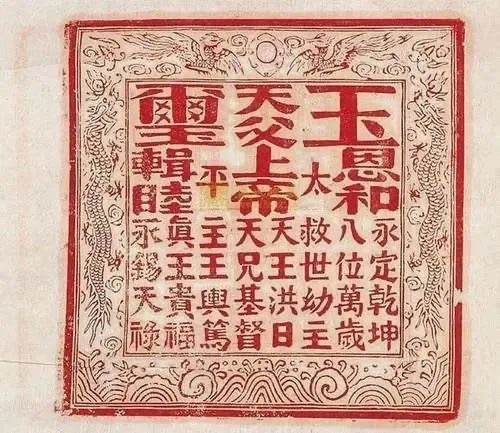 玉
恩和
太
天父上帝
平
璽
輯睦
永定乾坤
八位萬歲
救世幼主
天王洪日
天兄基督
主王輿篤
真王貴福
永錫天祿